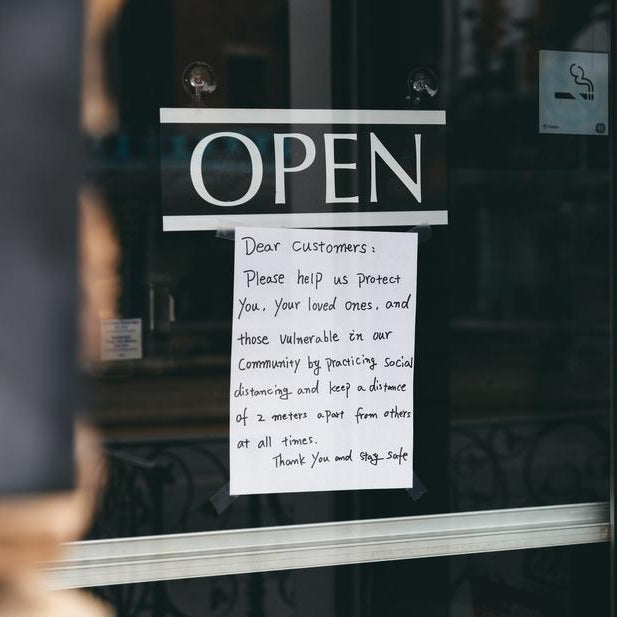 OPEN
Dear Customers:
Please help us protect
You, Your loved ones, and
those vulnerable in our
Community by practicing social
distancing and keep a distance
of 2 meters apart from others
at all times.
Thank You and stay safe